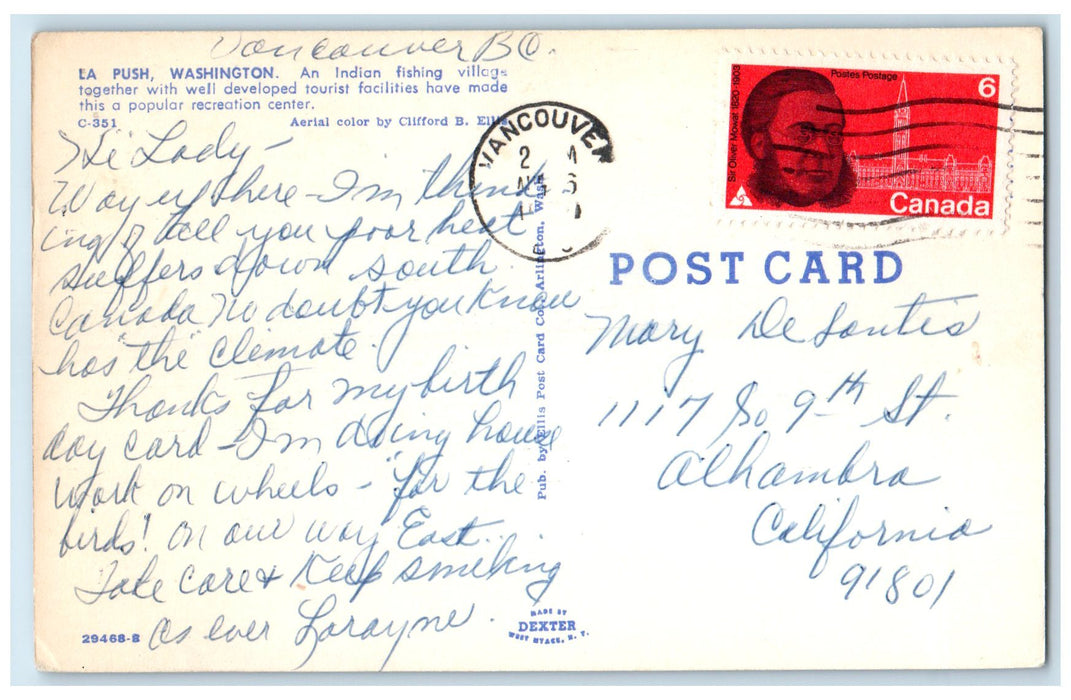 Vancouver BC.
LA PUSH, WASHINGTON. An Indian fishing village
together with well developed tourist facilities have made
this a popular recreation center.
C-351 Aerial color by Clifford B. Ellis
Hi Lady -
Way up there - I'm think-
ing of all you poor heat
suffers down south.
Canada no doubt you know
has "the" climate.
Thanks for my birth
day card - I'm doing house
work on wheels - "for the
birds"! On our way East.
Take care & Keep smiling
as ever Larayne.
29468-B
Pub. by Ellis Post Card Co. Arlington, Wash.
MADE BY
DEXTER
WEST NYACK, N. Y.
VANCOUVER
2
Sir Oliver Mowat 1820-1903
Postes Postage
6
Canada
POST CARD
Mary De Santis
1117 So 9th St.
Alhambra
California
91801